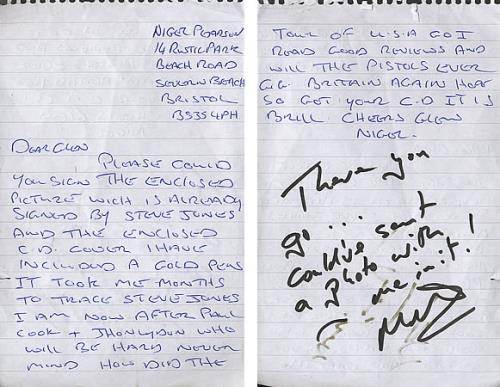 NIGEL PEARSON
14 RUSTIC PARK
BEACH ROAD
SEVERN BEACH
BRISTOL
BS35 4PH
DEAR GLEN
PLEASE COULD
YOU SIGN THE ENCLOSED
PICTURE WICH IS ALREADY
SIGNED BY STEVE JONES
AND THE ENCLOSED
C.D. COVER I HAVE
INCLUDED A GOLD PENS
IT TOOK ME MONTHS
TO TRACE STEVE JONES
I AM NOW AFTER PAUL
COOK + JHONLYDON WHO
WILL BE HARD NEVER
MIND HOW DID THE
TOUR OF U.S.A GO I
READ GOOD REVIEWS AND
WILL THE PISTOLS EVER
GIG BRITAIN AGAIN HOPE
SO GET YOUR C.D IT IS
BRILL CHEERS GLEN
NIGEL.
There you
go...
could've sent
a photo with
me in it!